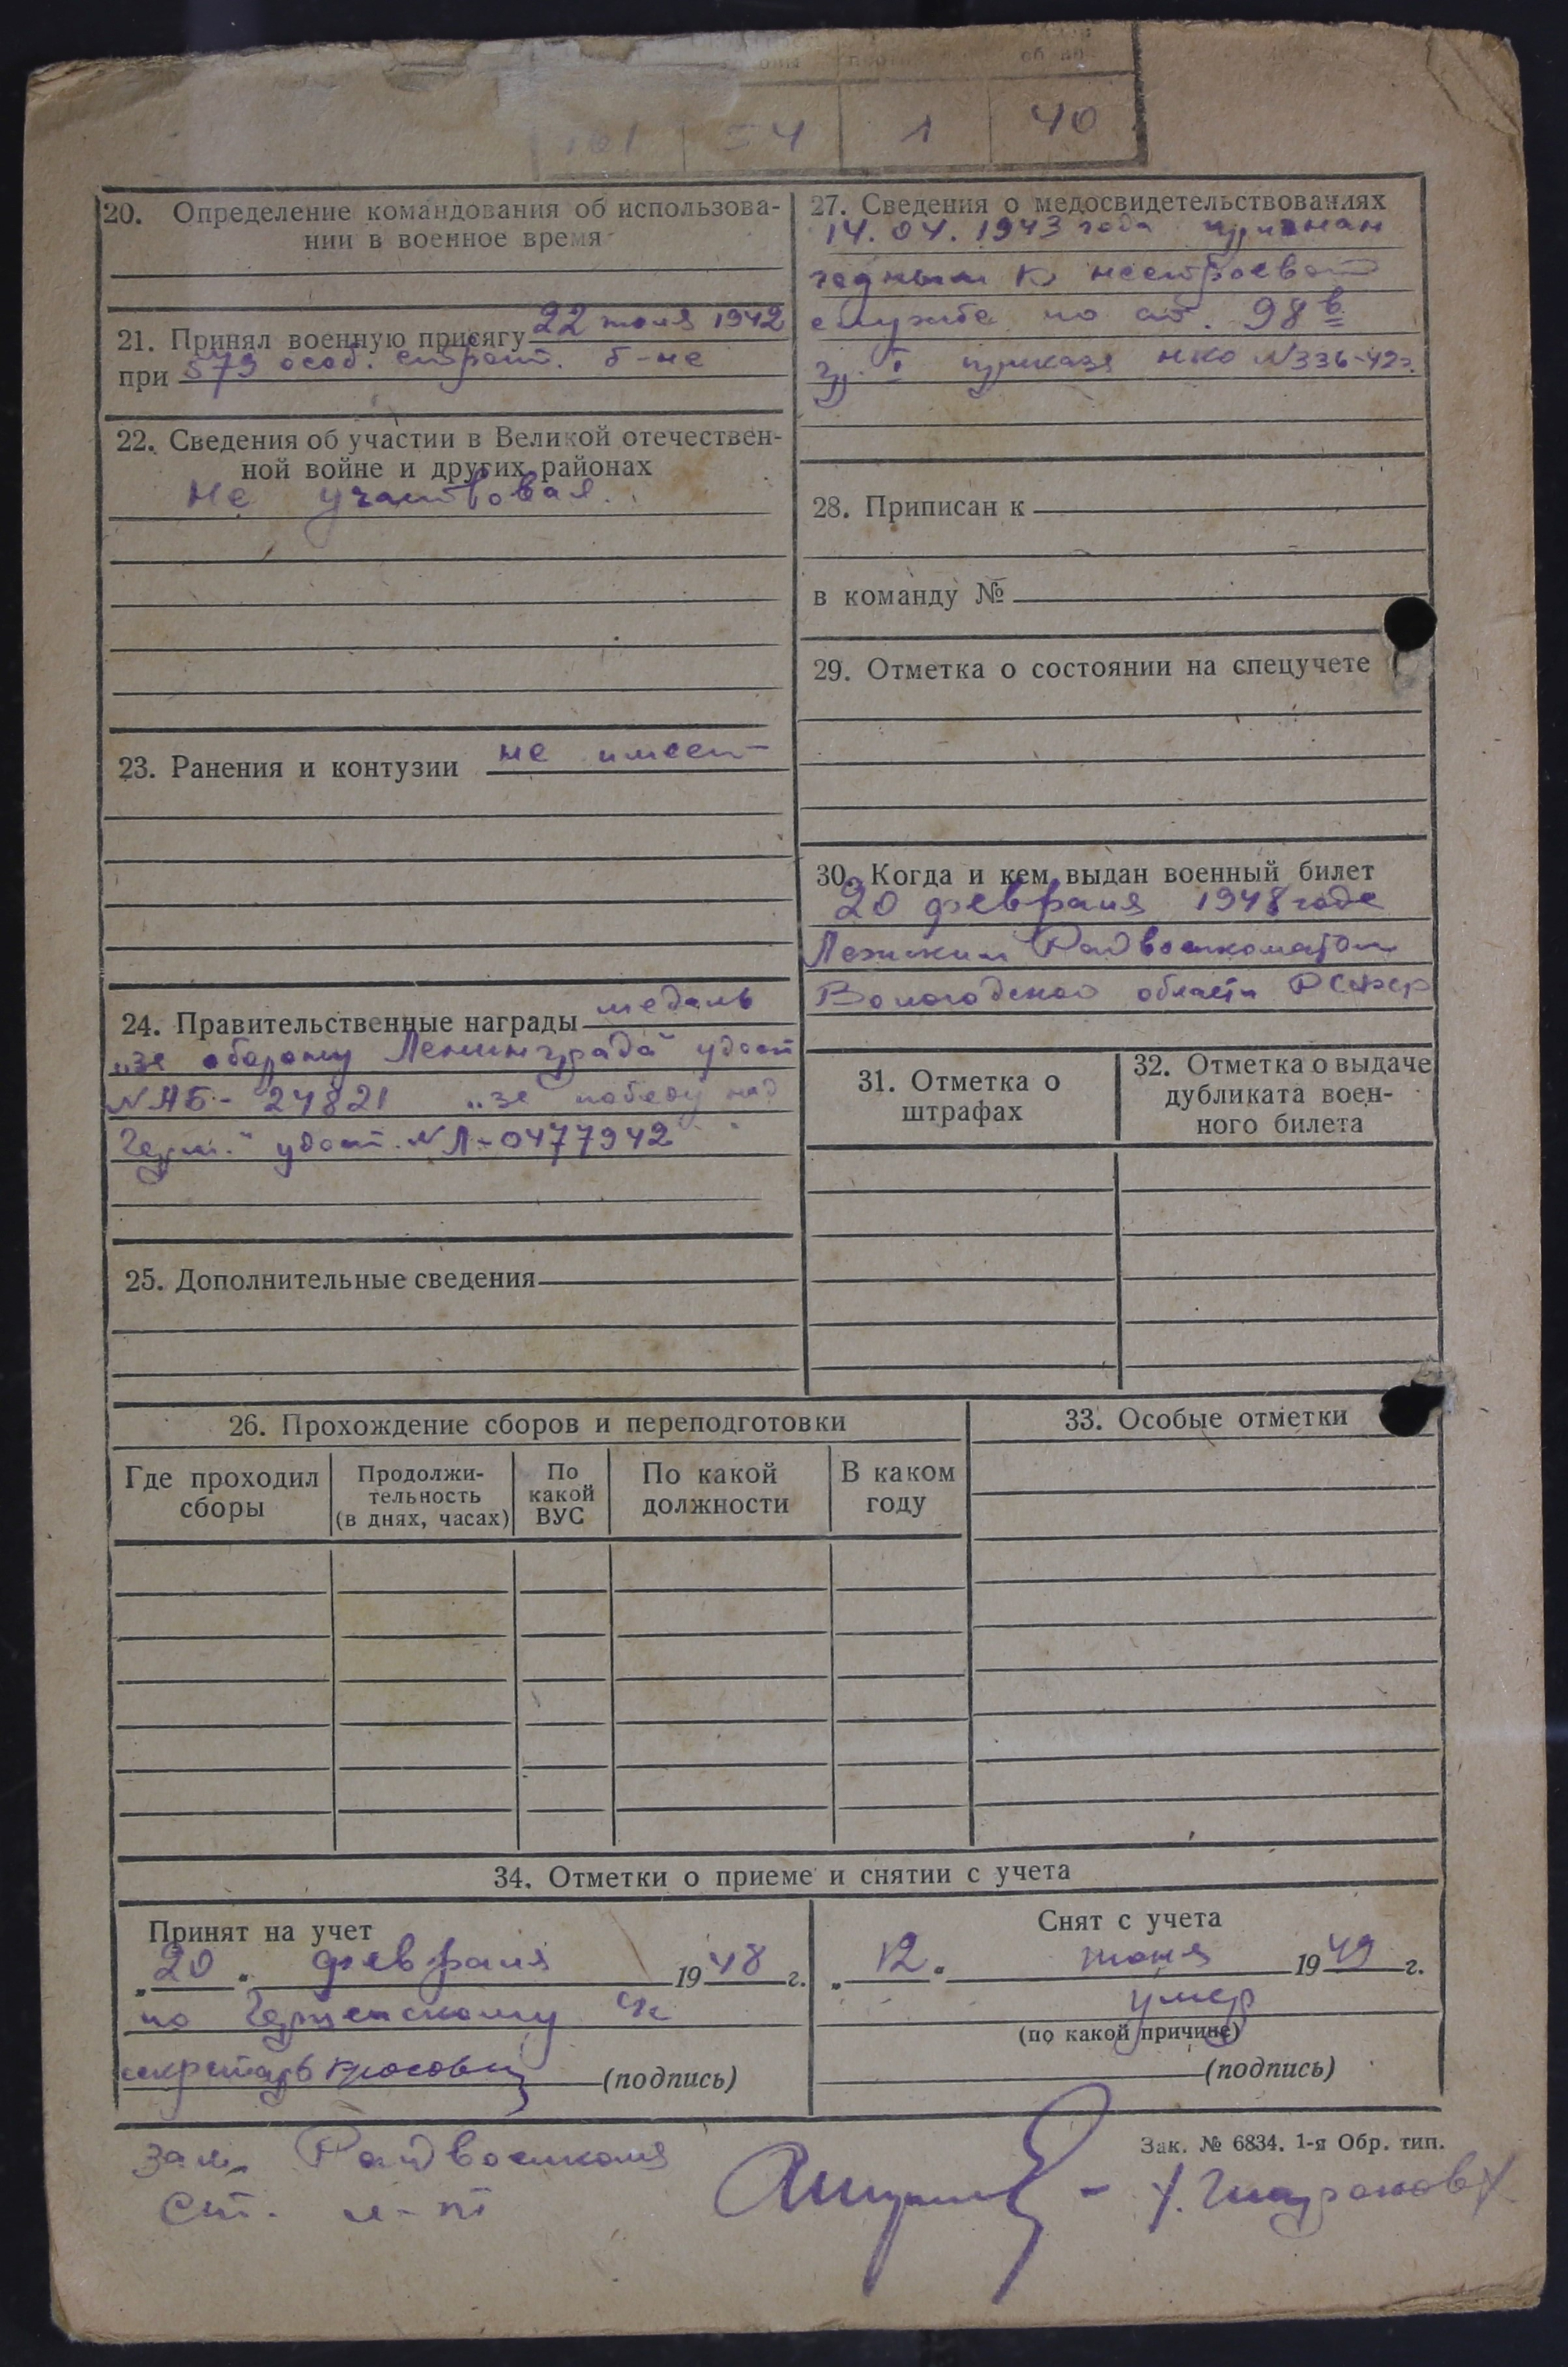 54 1 40
20. Определение командования об использова-
нии в военное время
21. Принял военную присягу 22 июня 1942
при 579 особ. строит. б-не
22. Сведения об участии в Великой отечествен-
ной войне и других районах
Не участвовал.
23. Ранения и контузии не имеет
24. Правительственные награды медаль
„за оборону Ленинграда“ удост
№ АБ - 24821 „за победу над
Герм.“ удост. № Л-0477942
25. Дополнительные сведения
27. Сведения о медосвидетельствованиях
14.04.1943 года признан
годным к нестроевой
службе по ст. 98 в
гр. I приказа НКО №336-42г.
28. Приписан к
в команду №
29. Отметка о состоянии на спецучете
30. Когда и кем выдан военный билет
20 февраля 1948 года
Райвоенкоматом
Вологодской области РСФСР
31. Отметка о
штрафах
32. Отметка о выдаче
дубликата воен-
ного билета
26. Прохождение сборов и переподготовки
Где проходил
сборы
Продолжи-
тельность
(в днях, часах)
По
какой
ВУС
По какой
должности
В каком
году
33. Особые отметки
34. Отметки о приеме и снятии с учета
Принят на учет
„20“ февраля 1948 г.
по с/с
секретарь
(подпись)
Снят с учета
„12“ июня 1949 г.
умер
(по какой причине)
(подпись)
Зак. № 6834. 1-я Обр. тип.
зам. Райвоенкома
ст. л-нт